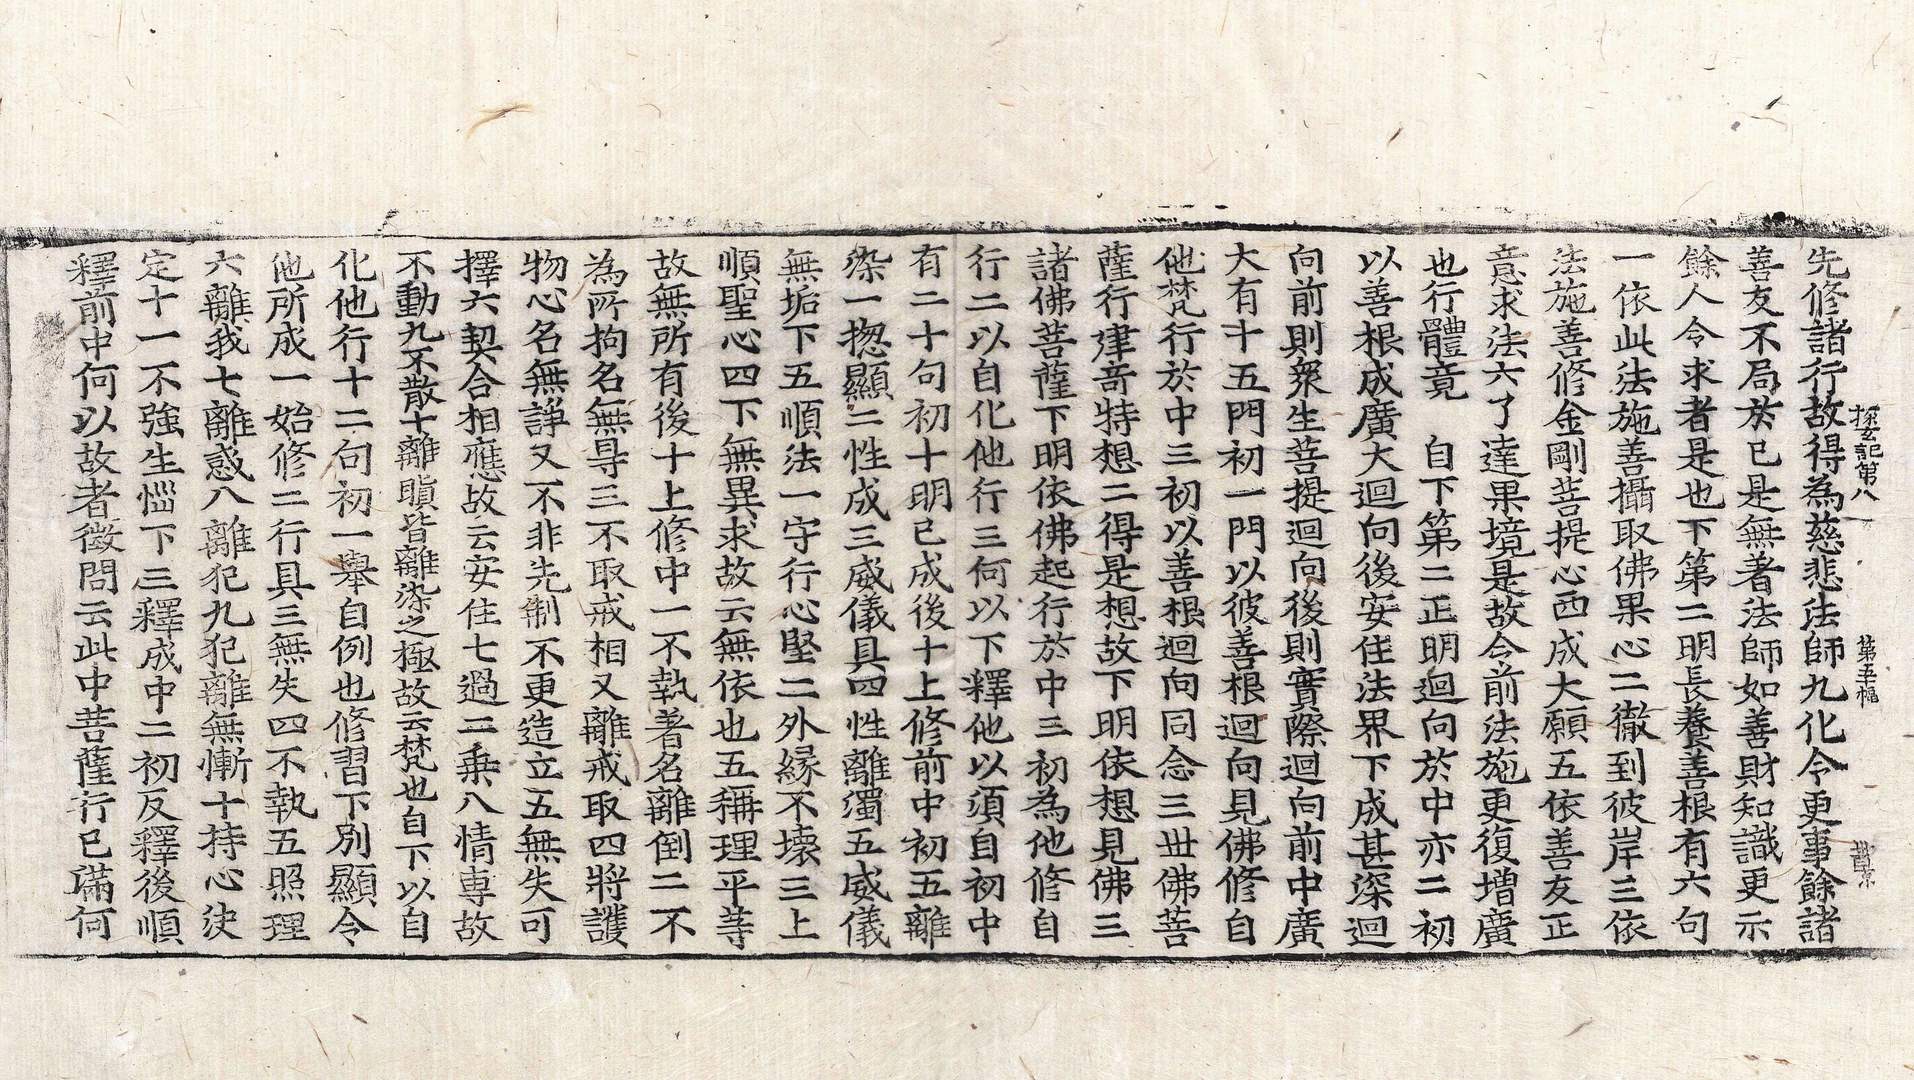 探玄記第八　第五幅
先修諸行故得為慈悲法師九化令更事餘諸
善友不局於已是無著法師如善財知識更示
餘人令求者是也下第二明長養善根有六句
一依此法施善攝取佛果心二徹到彼岸三依
法施善修金剛菩提心西成大願五依善友正
意求法六了達果境是故今前法施更復增廣
也行體竟　自下第二正明迴向於中亦二初
以善根成廣大迴向後安住法界下成甚深迴
向前則衆生菩提迴向後則實際迴向前中廣
大有十五門初一門以彼善根迴向見佛修自
他梵行於中三初以善根迴向同念三丗佛菩
薩行建竒特想二得是想故下明依想見佛三
諸佛菩薩下明依佛起行於中三初為他修自
行二以自化他行三何以下釋他以須自初中
有二十句初十明已成後十上修前中初五離
染一揔顯二性成三威儀具四性離濁五威儀
無垢下五順法一守行心堅二外緣不壞三上
順聖心四下無異求故云無依也五稱理平等
故無所有後十上修中一不執著名離倒二不
為所拘名無㝵三不取戒相又離戒取四將護
物心名無諍又不非先制不更造立五無失可
擇六契合相應故云安住七過二乗八情専故
不動九不散十離瞋皆離染之極故云梵也自下以自
化他行十二句初一舉自例也修習下別顯令
他所成一始修二行具三無失四不執五照理
六離我七離惑八離犯九犯離無慚十持心決
定十一不強生惱下三釋成中二初反釋後順
釋前中何以故者徵問云此中菩薩行已滿何